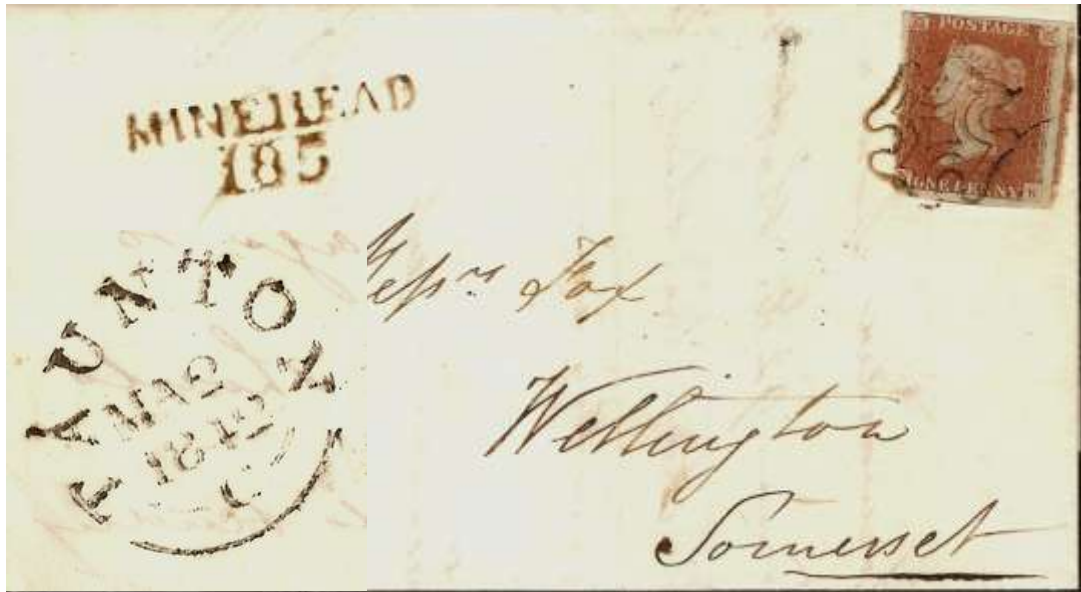 MINEHEAD
185
POSTAGE
ONE PENNY
TAUNTON
MA 2
1842
Messrs Fox
Wellington
Somerset